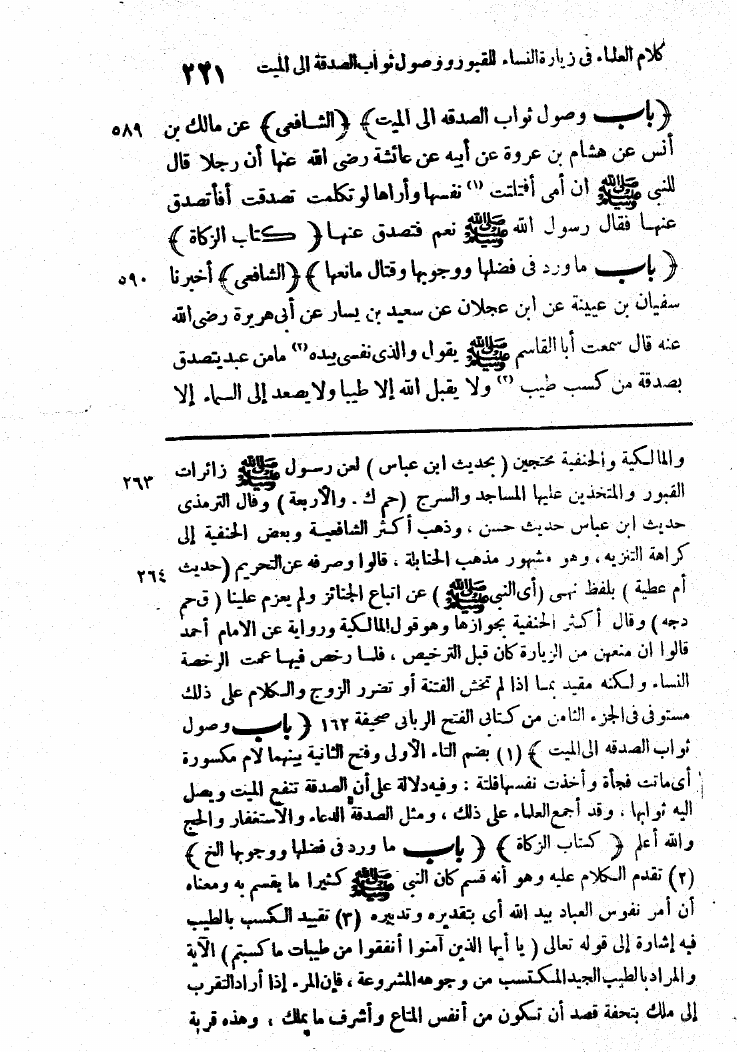 كلام العلماء فى زيارة النساء للقبور ووصول ثواب الصدقة الى الميت ٢٢١
﴿ باب وصول ثواب الصدقه الى الميت ﴾ ﴿ الشافعى ﴾ عن مالك بن ٥٨٩
أنس عن هشام بن عروة عن أبيه عن عائشة رضى الله عنها أن رجلا قال
للنبى ﷺ ان أمى أفتلتت (١) نفسها وأراها لو تكلمت تصدقت أفأتصدق
عنها فقال رسول الله ﷺ نعم فتصدق عنها ﴿ كتاب الزكاة ﴾
﴿ باب ما ورد فى فضلها ووجوبها وقتال مانعها ﴾ ﴿ الشافعى ﴾ أخبرنا ٥٩٠
سفيان بن عيينة عن ابن عجلان عن سعيد بن يسار عن أبى هريرة رضى الله
عنه قال سمعت أبا القاسم ﷺ يقول والذى نفسى بيده (٢) مامن عبد يتصدق
بصدقة من كسب طيب (٣) ولا يقبل الله إلا طيبا ولا يصعد إلى السماء إلا
والمالكية والحنفية محتجين ( بحديث ابن عباس ) لعن رسول ﷺ زائرات ٢٦٣
القبور والمتخذين عليها المساجد والسرج ( حم ك . والأربعة ) وقال الترمذى
حديث ابن عباس حديث حسن ، وذهب أكثر الشافعية وبعض الحنفية إلى
كراهة التنزيه ، وهو مشهور مذهب الحنابلة ، قالوا وصرفه عن التحريم ( حديث ٢٦٤
أم عطية ) بلفظ نهى ( أى النبى ﷺ ) عن اتباع الجنائز ولم يعزم علينا ( ق حم
دجه ) وقال أكثر الحنفية بجوازها وهو قول المالكية ورواية عن الامام أحمد
قالوا ان منعهن من الزيارة كان قبل الترخيص ، فلما رخص فيها عمت الرخصة
النساء ولكنه مقيد بما اذا لم تخش الفتنة أو تضرر الزوج والكلام على ذلك
مستوفى فى الجزء الثامن من كتابى الفتح الربانى صحيفة ١٦٢ ﴿ باب وصول
ثواب الصدقه الى الميت ﴾ (١) بضم التاء الأولى وفتح الثانية بينهما لام مكسورة
أى ماتت فجأة وأخذت نفسها فلتة : وفيه دلالة على أن الصدقة تنفع الميت ويصل
اليه ثوابها ، وقد أجمع العلماء على ذلك ، ومثل الصدقة الدعاء والاستغفار والحج
والله أعلم ﴿ كتاب الزكاة ﴾ ﴿ باب ما ورد فى فضلها ووجوبها الخ ﴾
(٢) تقدم الكلام عليه وهو أنه قسم كان النبى ﷺ كثيرا ما يقسم به ومعناه
أن أمر نفوس العباد بيد الله أى بتقديره وتدبيره (٣) تقييد الكسب بالطيب
فيه إشارة إلى قوله تعالى ( يا أيها الذين آمنوا أنفقوا من طيبات ما كسبتم ) الآية
والمراد بالطيب الجيد المكتسب من وجوهه المشروعة ، فإن المرء إذا أراد التقرب
إلى ملك بتحفة قصد أن تكون من أنفس المتاع وأشرف ما يملك ، وهذه قربة